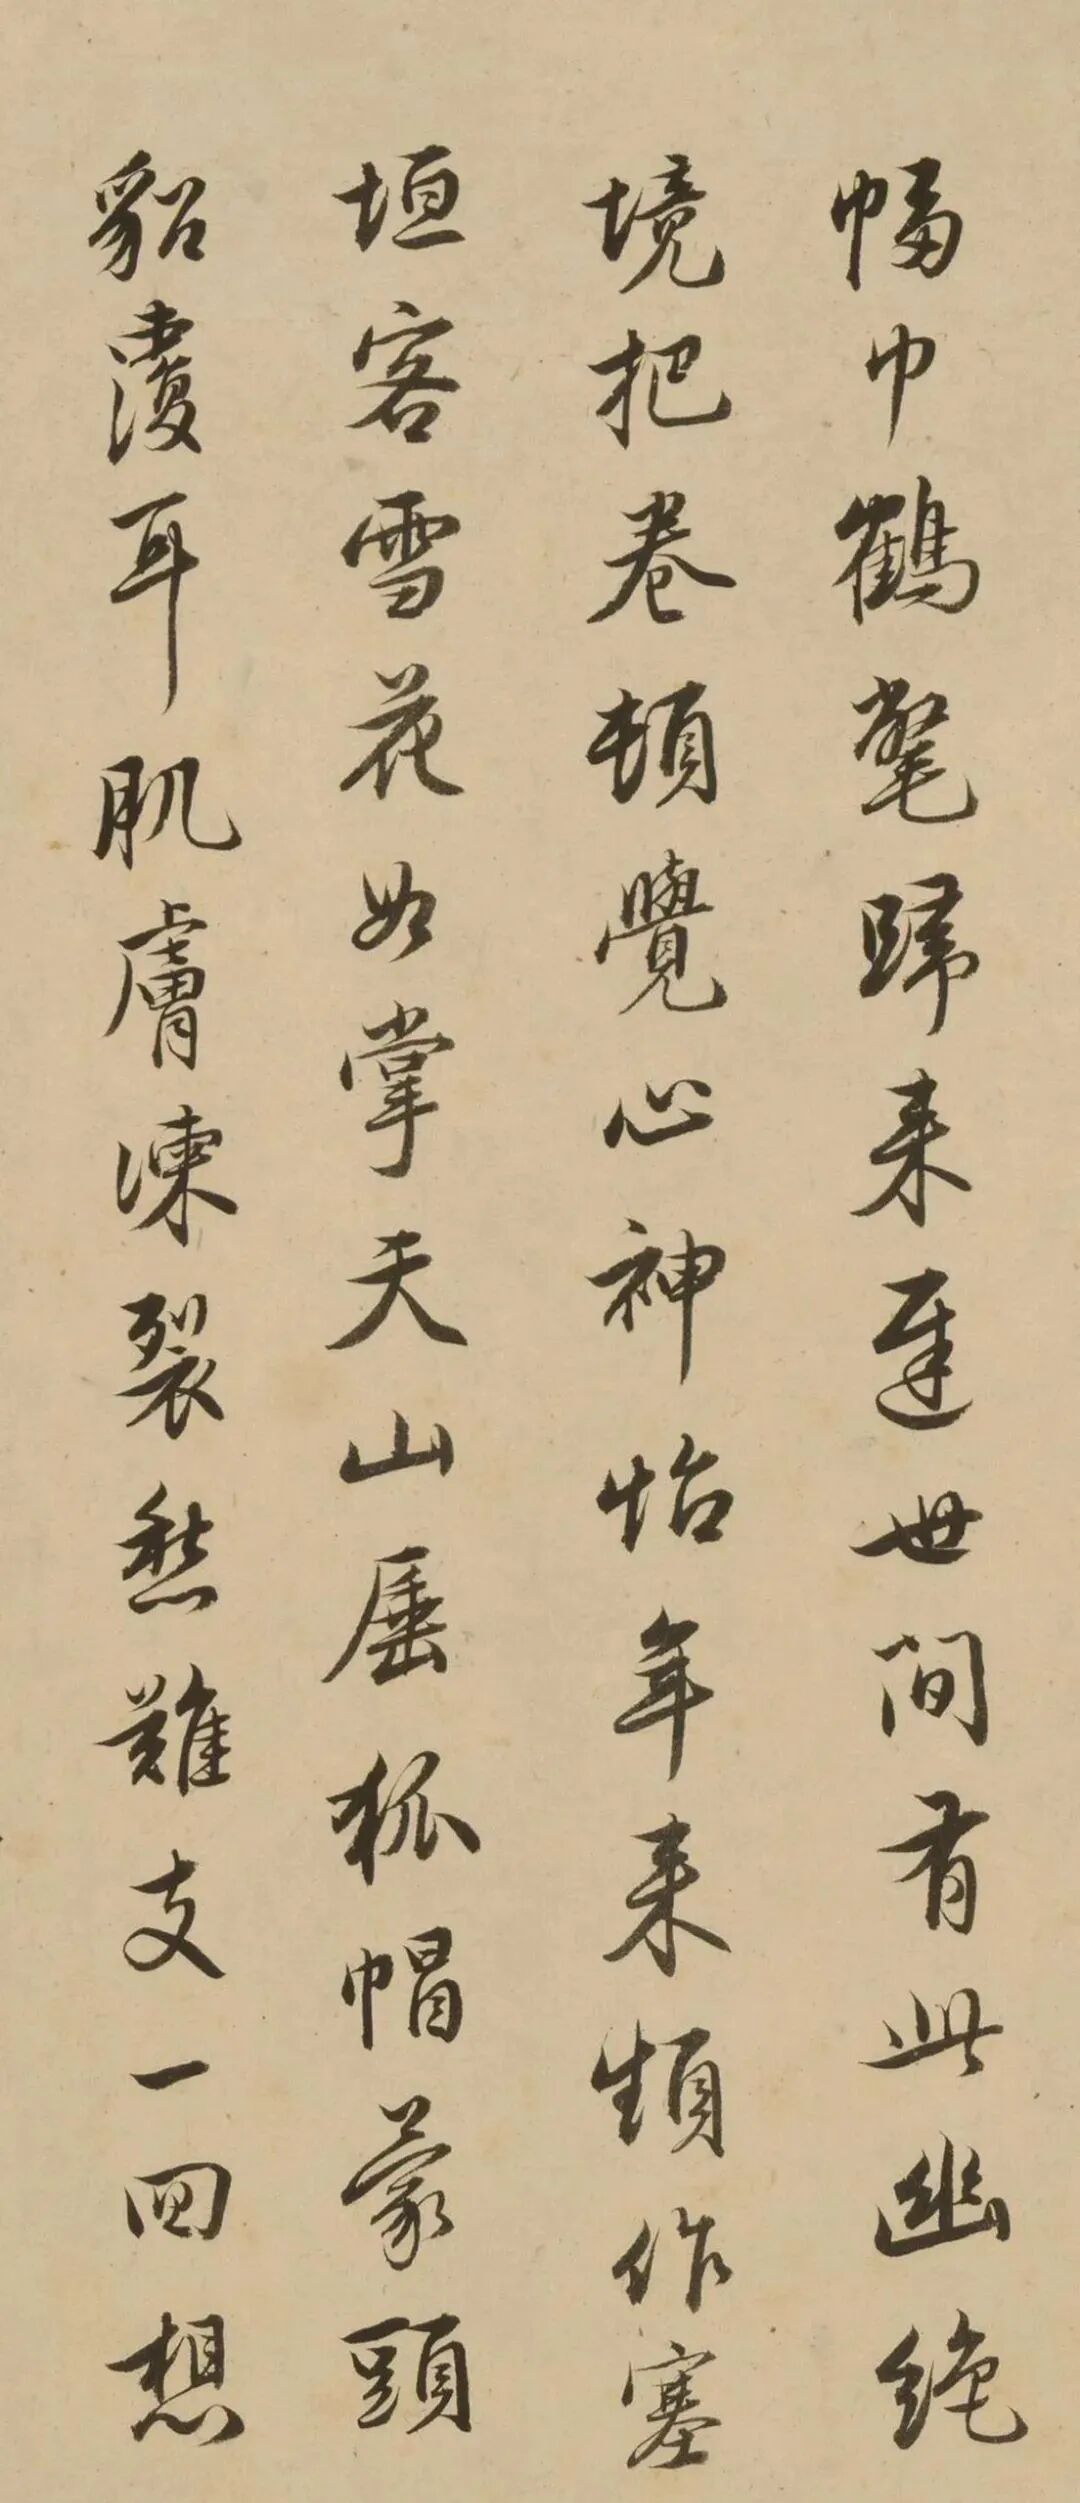 幅巾鶴氅歸来遲世間有此幽絶
境把卷頓覺心神怡年来頻作塞
垣客雪花如掌天山厓狐帽蒙頭
貂覆耳肌膚凍裂愁難支一回想